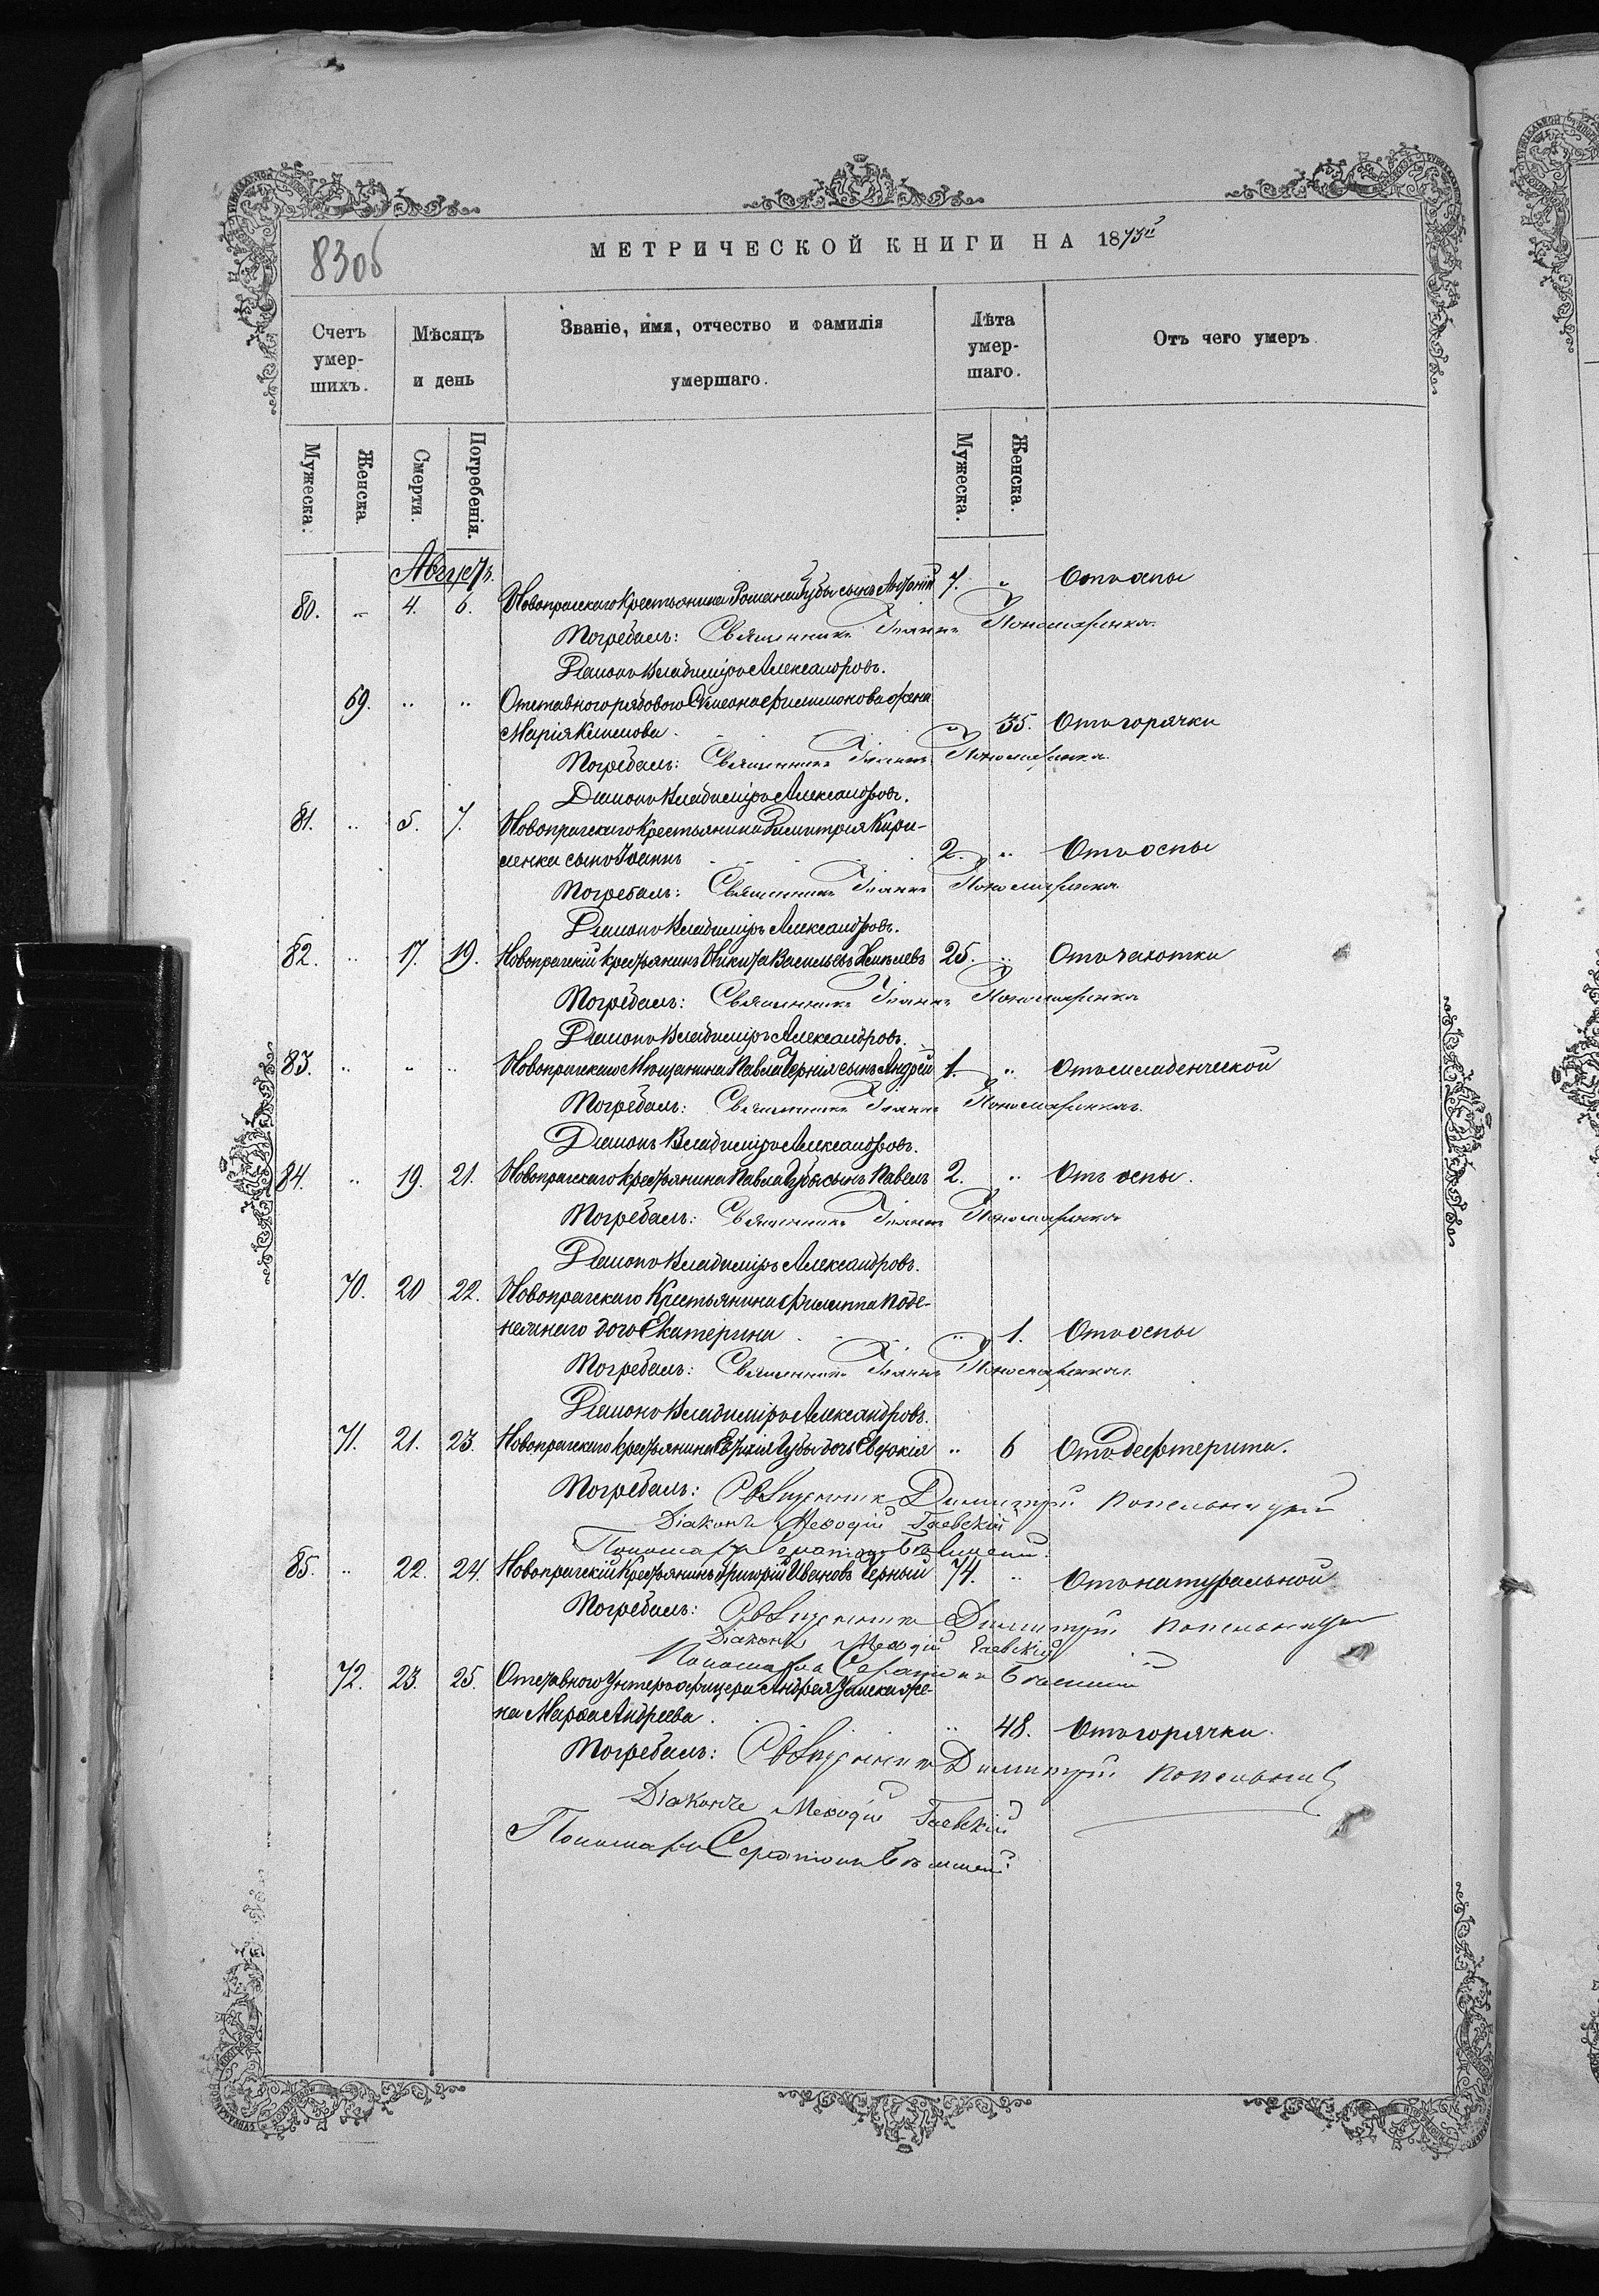 83об
МЕТРИЧЕСКОЙ КНИГИ НА 1873й
Счетъ умер-шихъ.
Мѣсяцъ и день
Званіе, имя, отчество и фамилія умершаго.
Лѣта умер-шаго.
Отъ чего умеръ
Мужеска.
Женска.
Смерти.
Погребенія.
Мужеска.
Женска.
Августъ.
80. „ 4. 6. Новопрагскаго крестьянина Романа Губы сынъ Антоній 7. „ Отъ оспы
Погребалъ: Священникъ Іоаннъ Пономаренко.
Діаконъ Владиміръ Александровъ.
69. „ „ Отставного рядового Симеона Филимонова жена
Марія Климова. „ 35. Отъ горячки
Погребалъ: Священникъ Іоаннъ Пономаренко.
Діаконъ Владиміръ Александровъ.
81. „ 5. 7. Новопрагскаго крестьянина Димитрія Кири-
ленка сынъ Іоаннъ 2. „ Отъ оспы
Погребалъ: Священникъ Іоаннъ Пономаренко
Діаконъ Владиміръ Александровъ.
82. „ 17. 19. Новопрагскій крестьянинъ Никита Васильевъ 25. „ Отъ чахотки
Погребалъ: Священникъ Іоаннъ Пономаренко
Діаконъ Владиміръ Александровъ.
83. „ „ „ Новопрагскаго Мѣщанина Павла Чернія сынъ Андрей 1. „ Отъ младенческой
Погребалъ: Священникъ Іоаннъ Пономаренко.
Діаконъ Владиміръ Александровъ.
84. „ 19. 21. Новопрагскаго крестьянина Павла Губы сынъ Павелъ 2. „ Отъ оспы.
Погребалъ: Священникъ Іоаннъ Пономаренко
Діаконъ Владиміръ Александровъ.
70. 20 22. Новопрагскаго Крестьянина Филиппа
дочь Екатерина „ 1. Отъ оспы
Погребалъ: Священникъ Іоаннъ Пономаренко.
Діаконъ Владиміръ Александровъ.
71. 21. 23. Новопрагскаго крестьянина Губы дочь Евдокія „ 6 Отъ дефтерита.
Погребалъ: Священникъ Димитрій
Діаконъ Меѳодій Гаевскій
Пономарь Серапіонъ
85. „ 22. 24. Новопрагскій Крестьянинъ Григорій Ивановъ Черный 74. „ Отъ натуральной
Погребалъ: Священникъ Димитрій
Діаконъ Меѳодій Гаевскій
Пономарь Серапіонъ
72. 23. 25. Отставного Унтеръ офицера Андрея же-
на Марѳа Андреева. „ 48. Отъ горячки.
Погребалъ: Священникъ Димитрій
Діаконъ Меѳодій Гаевскій
Пономарь Серапіонъ